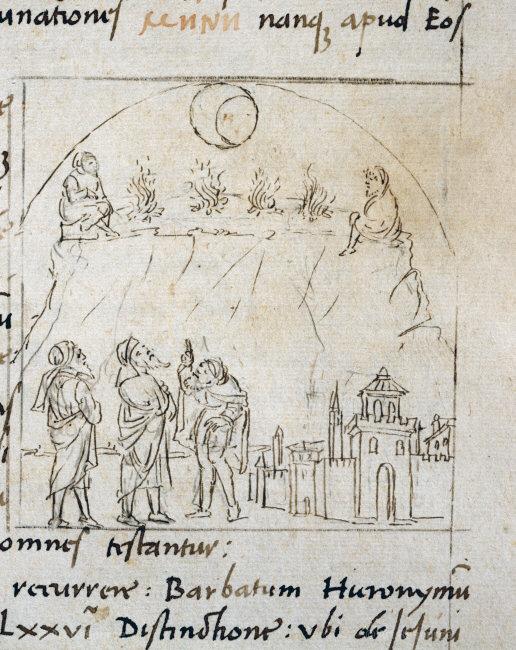 nanq apud Eos
omnes testantur:
recurrere: Barbatum Hieronymū
Lxxvi Distinctione: vbi de Ieiuni